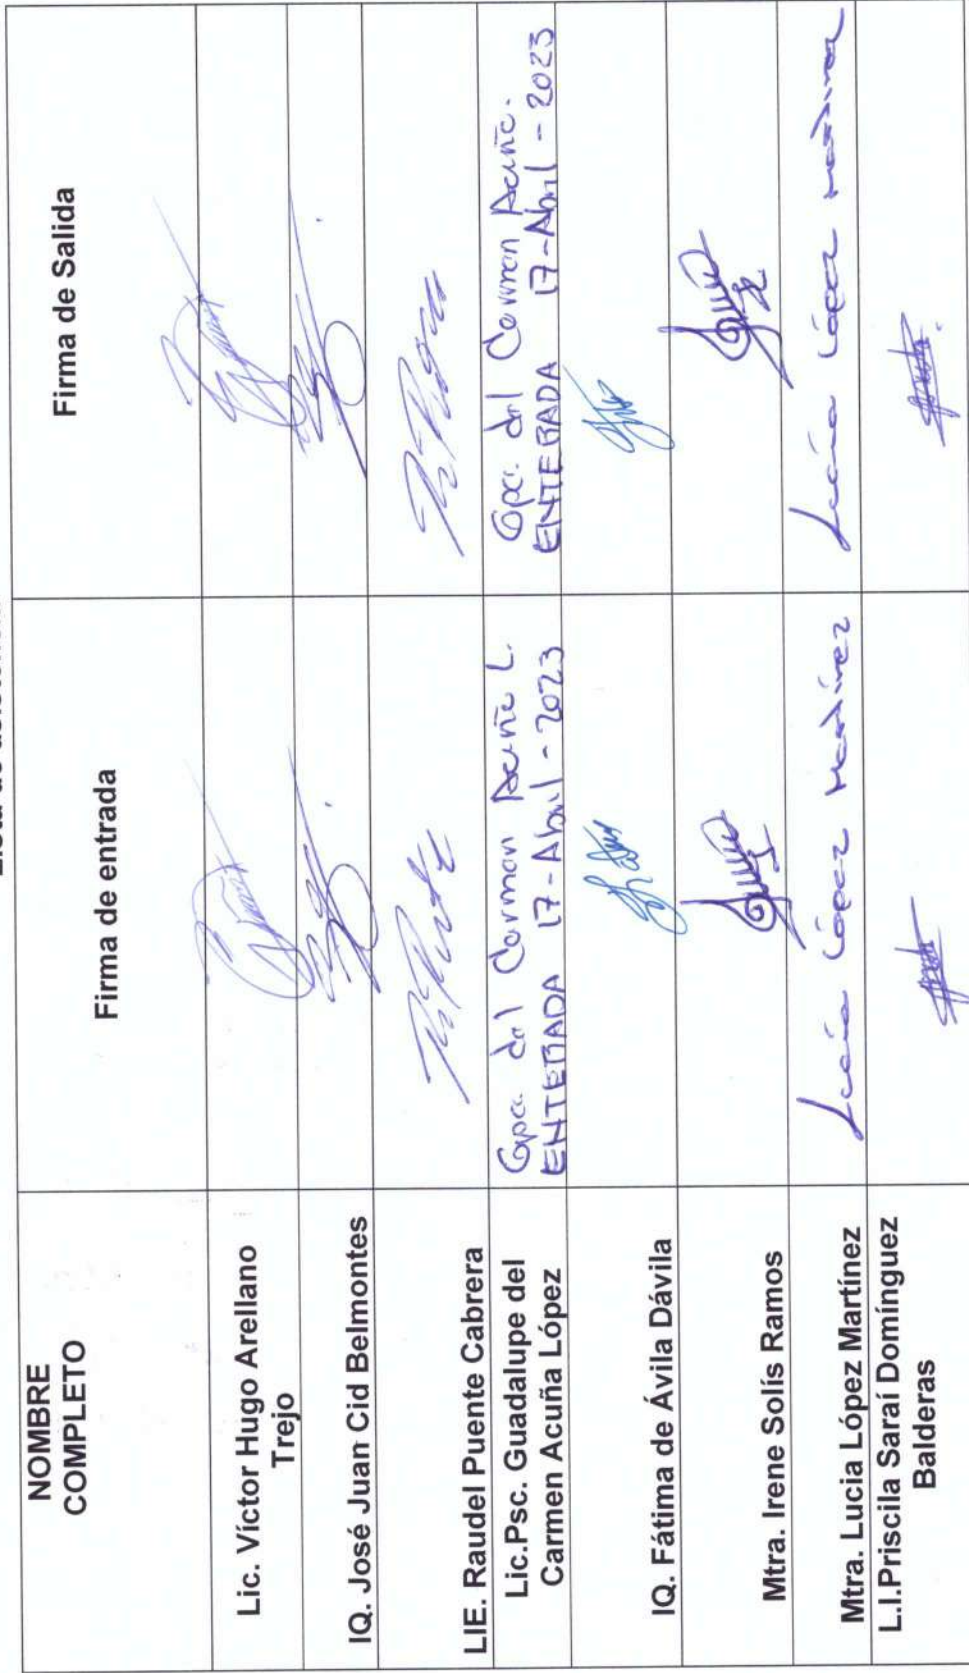 NOMBRE
COMPLETO
Firma de entrada
Firma de Salida
Lic. Víctor Hugo Arellano
Trejo
IQ. José Juan Cid Belmontes
LIE. Raudel Puente Cabrera
Lic.Psc. Guadalupe del
Carmen Acuña López
Gpe. del Carmen Acuña L.
ENTERADA 17-Abril-2023
Gpe. del Carmen Acuña.
ENTERADA 17-Abril-2023
IQ. Fátima de Ávila Dávila
Mtra. Irene Solís Ramos
Mtra. Lucia López Martínez
Lucía López Martínez
Lucía López Martínez
L.I.Priscila Saraí Domínguez
Balderas